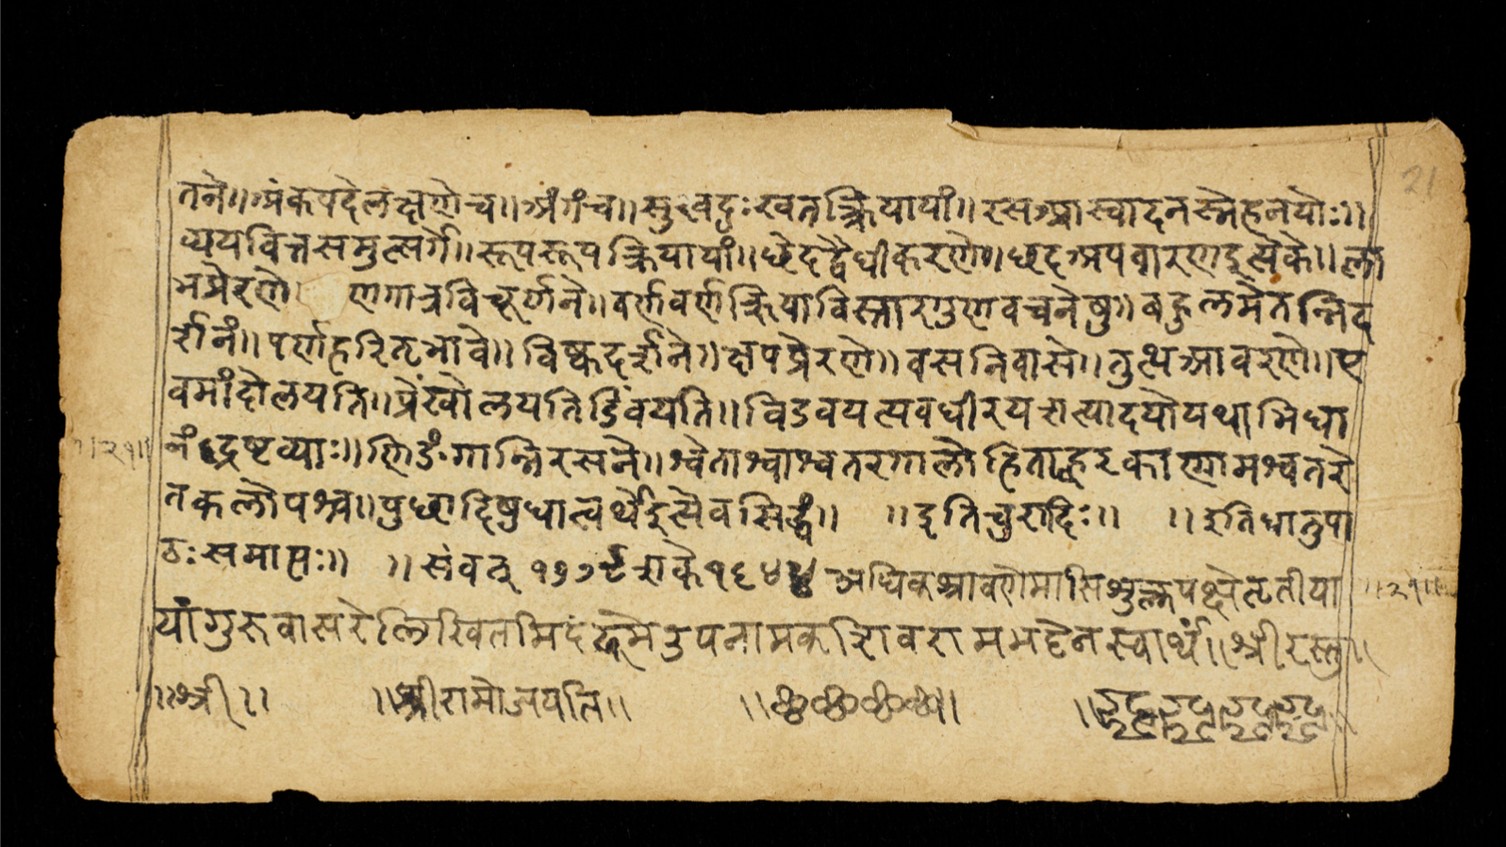 तने॥अंकपदेलक्षणेच॥अंगंच॥सुखदुःखतत्क्रियायां॥रसआस्वादनस्नेहनयोः॥
व्ययवित्तसमुत्सर्गे॥रूपरूपक्रियायां॥छेदद्वैधीकरणे॥छदअपवारणइत्येके॥ला
भप्रेरणे॥ णगात्रविचूर्णने॥वर्णवर्णक्रियाविस्तारगुणवचनेषु॥बहुलमेतन्निद
र्शनं॥पर्णहरितभावे॥विष्कदर्शने॥क्षपप्रेरणे॥वसनिवासे॥तुत्थआवरणे॥ए
वमांदोलयति॥प्रेंखोलयतिडिंवयति॥विडवयत्यवधीरयत्यादयोयथाभिधा
नंद्रष्टव्याः॥णिङंगान्निरसने॥श्वेताश्वाश्वतरगालोहिताह्वरकाणामश्वतरे
तकलोपश्च॥पुच्छादिषुधात्वर्थेइत्येवसिद्धं॥ ॥इतिचुरादिः॥ ॥इतिधातुपा
ठः समाप्तः॥ ॥संवत् १७७९शके१६४४अधिकश्रावणेमासिशुक्लपक्षेतृतीया
यांगुरुवासरेलिखितमिदं रामभट्टेनस्वार्थं॥श्रीरस्तु॥
॥श्री॥ ॥श्रीरामोजयति॥ ॥छ॥छ॥छ॥छ॥
॥२१॥
॥२१॥
21